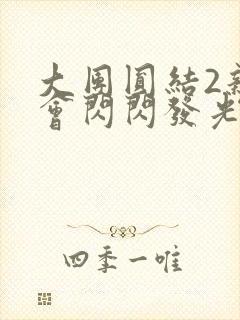 大團圓結2
會閃閃發光
四季一唯